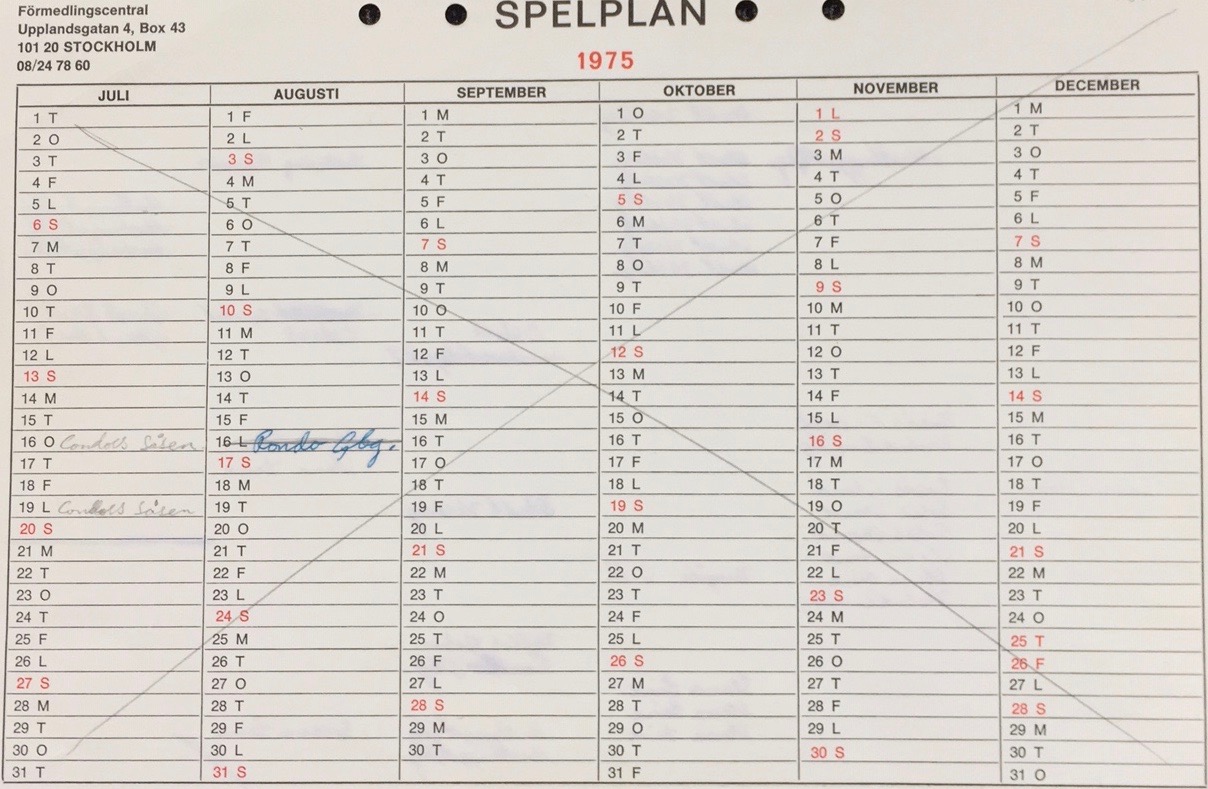 Förmedlingscentral
Upplandsgatan 4, Box 43
101 20 STOCKHOLM
08/24 78 60
SPELPLAN
1975
JULI
1 T
2 O
3 T
4 F
5 L
6 S
7 M
8 T
9 O
10 T
11 F
12 L
13 S
14 M
15 T
16 O
17 T
18 F
19 L
20 S
21 M
22 T
23 O
24 T
25 F
26 L
27 S
28 M
29 T
30 O
31 T
AUGUSTI
1 F
2 L
3 S
4 M
5 T
6 O
7 T
8 F
9 L
10 S
11 M
12 T
13 O
14 T
15 F
16 L Rondo Gbg.
17 S
18 M
19 T
20 O
21 T
22 F
23 L
24 S
25 M
26 T
27 O
28 T
29 F
30 L
31 S
SEPTEMBER
1 M
2 T
3 O
4 T
5 F
6 L
7 S
8 M
9 T
10 O
11 T
12 F
13 L
14 S
15 M
16 T
17 O
18 T
19 F
20 L
21 S
22 M
23 T
24 O
25 T
26 F
27 L
28 S
29 M
30 T
OKTOBER
1 O
2 T
3 F
4 L
5 S
6 M
7 T
8 O
9 T
10 F
11 L
12 S
13 M
14 T
15 O
16 T
17 F
18 L
19 S
20 M
21 T
22 O
23 T
24 F
25 L
26 S
27 M
28 T
29 O
30 T
31 F
NOVEMBER
1 L
2 S
3 M
4 T
5 O
6 T
7 F
8 L
9 S
10 M
11 T
12 O
13 T
14 F
15 L
16 S
17 M
18 T
19 O
20 T
21 F
22 L
23 S
24 M
25 T
26 O
27 T
28 F
29 L
30 S
DECEMBER
1 M
2 T
3 O
4 T
5 F
6 L
7 S
8 M
9 T
10 O
11 T
12 F
13 L
14 S
15 M
16 T
17 O
18 T
19 F
20 L
21 S
22 M
23 T
24 O
25 T
26 F
27 L
28 S
29 M
30 T
31 O